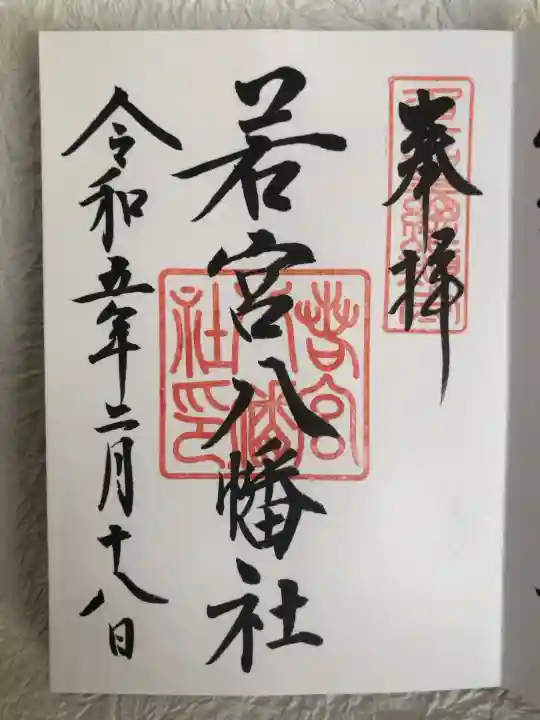 奉拝
若宮八幡社
若宮八幡社印
令和五年二月十八日